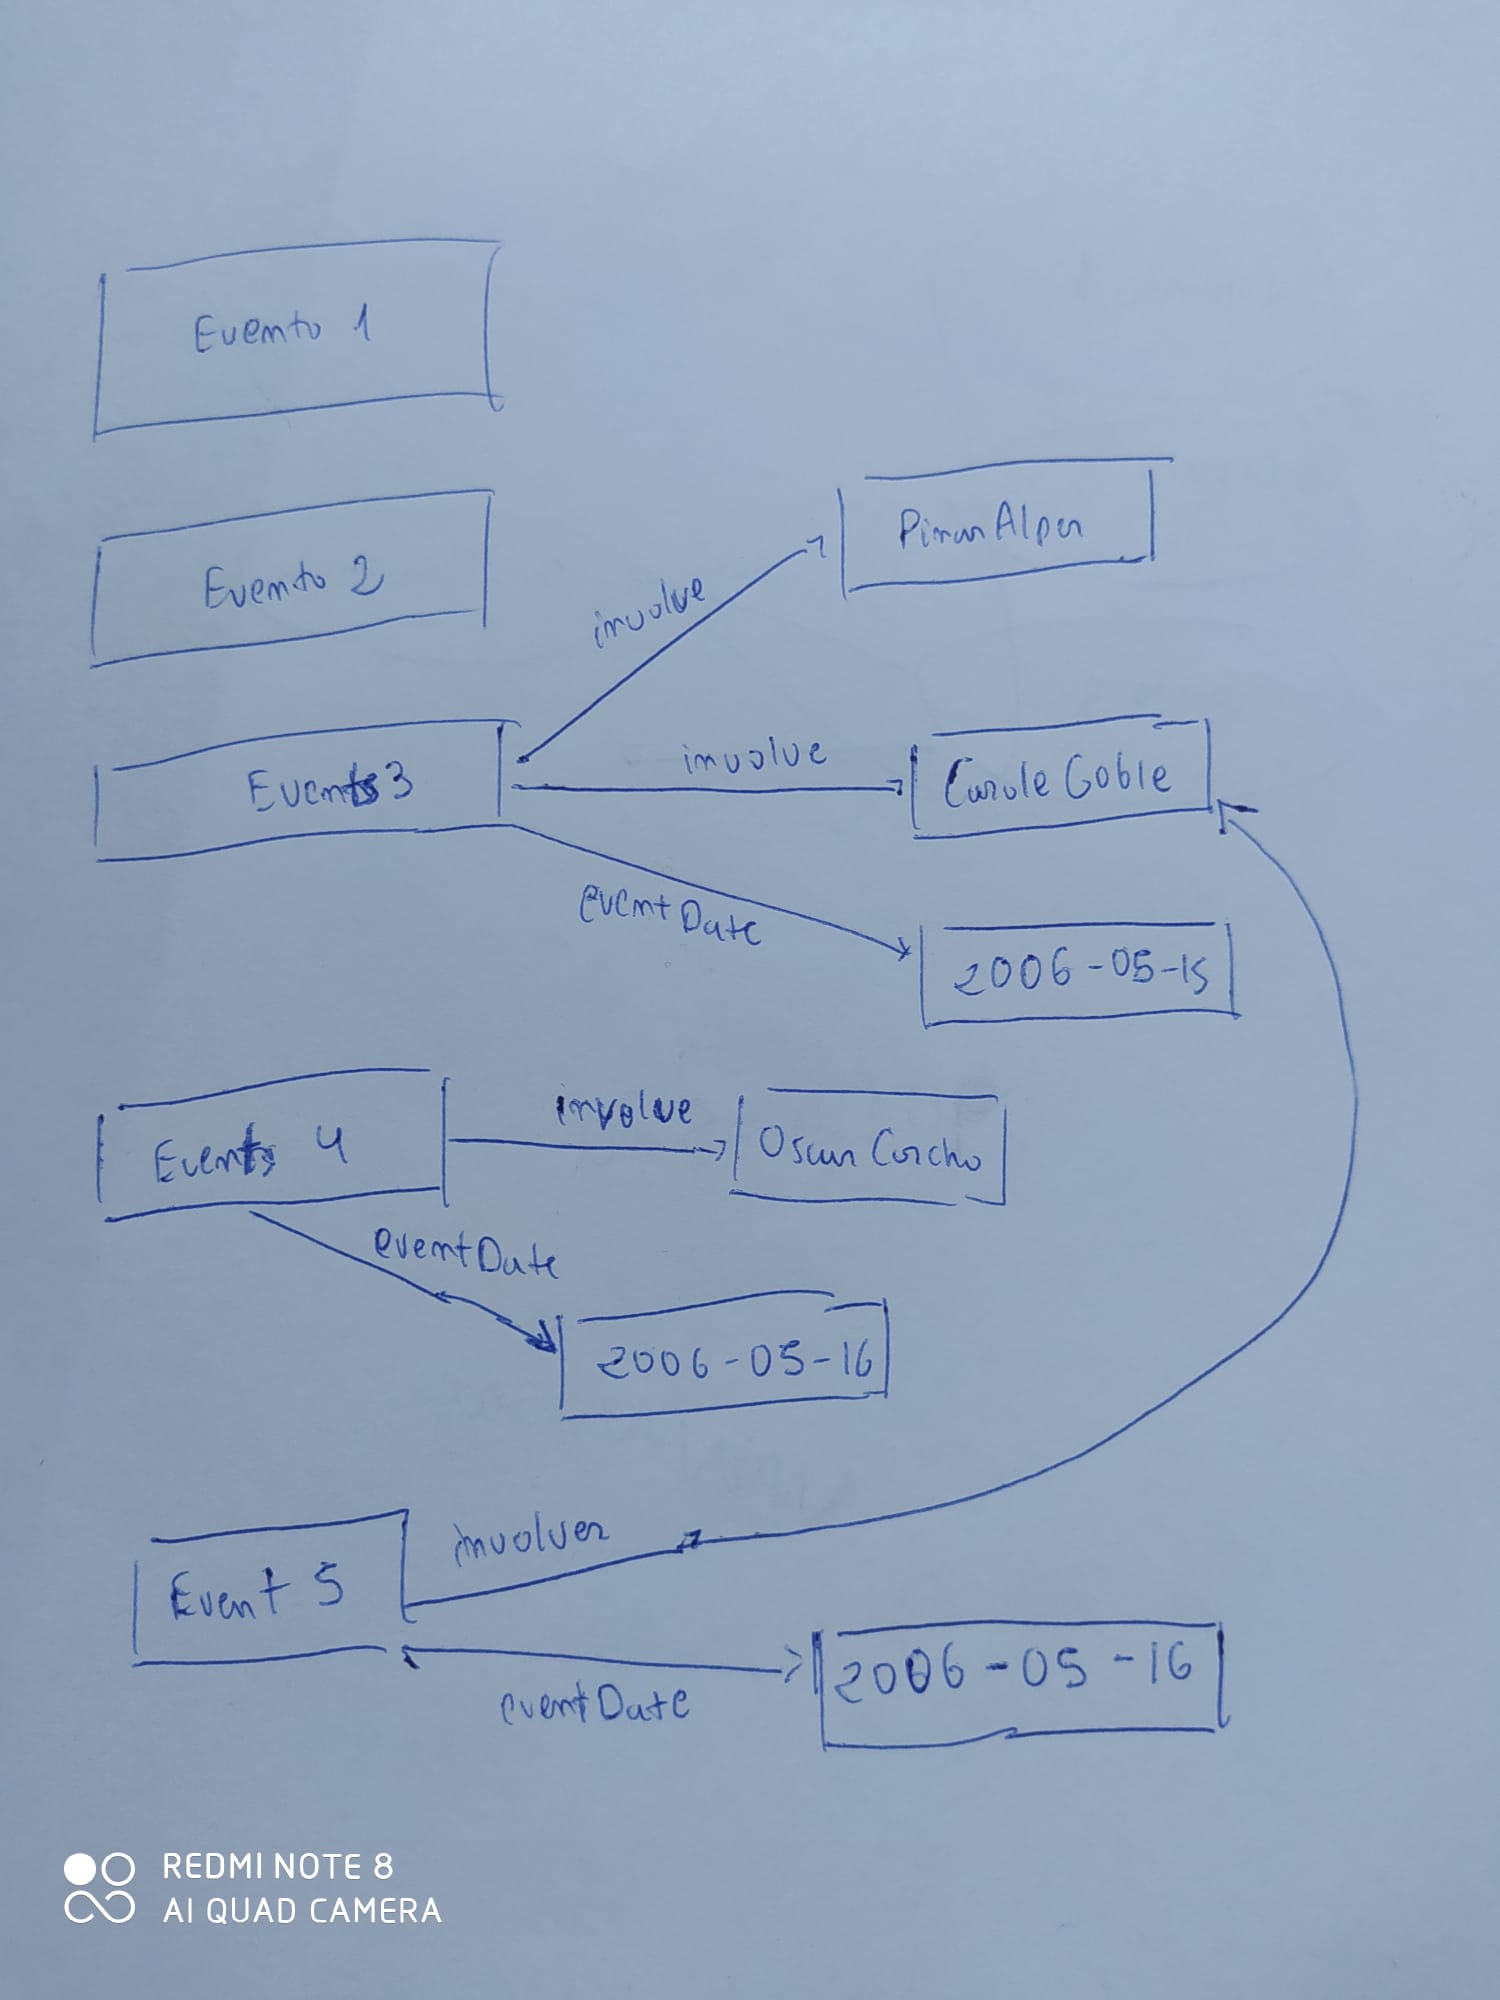 Evento 1
Evento 2
Pinar Alper
involve
Event 3
involve
Carole Goble
eventDate
2006-05-15
Event 4
involve
Oscar Corcho
eventDate
2006-05-16
Event 5
involver
eventDate
2006-05-16
REDMI NOTE 8
AI QUAD CAMERA